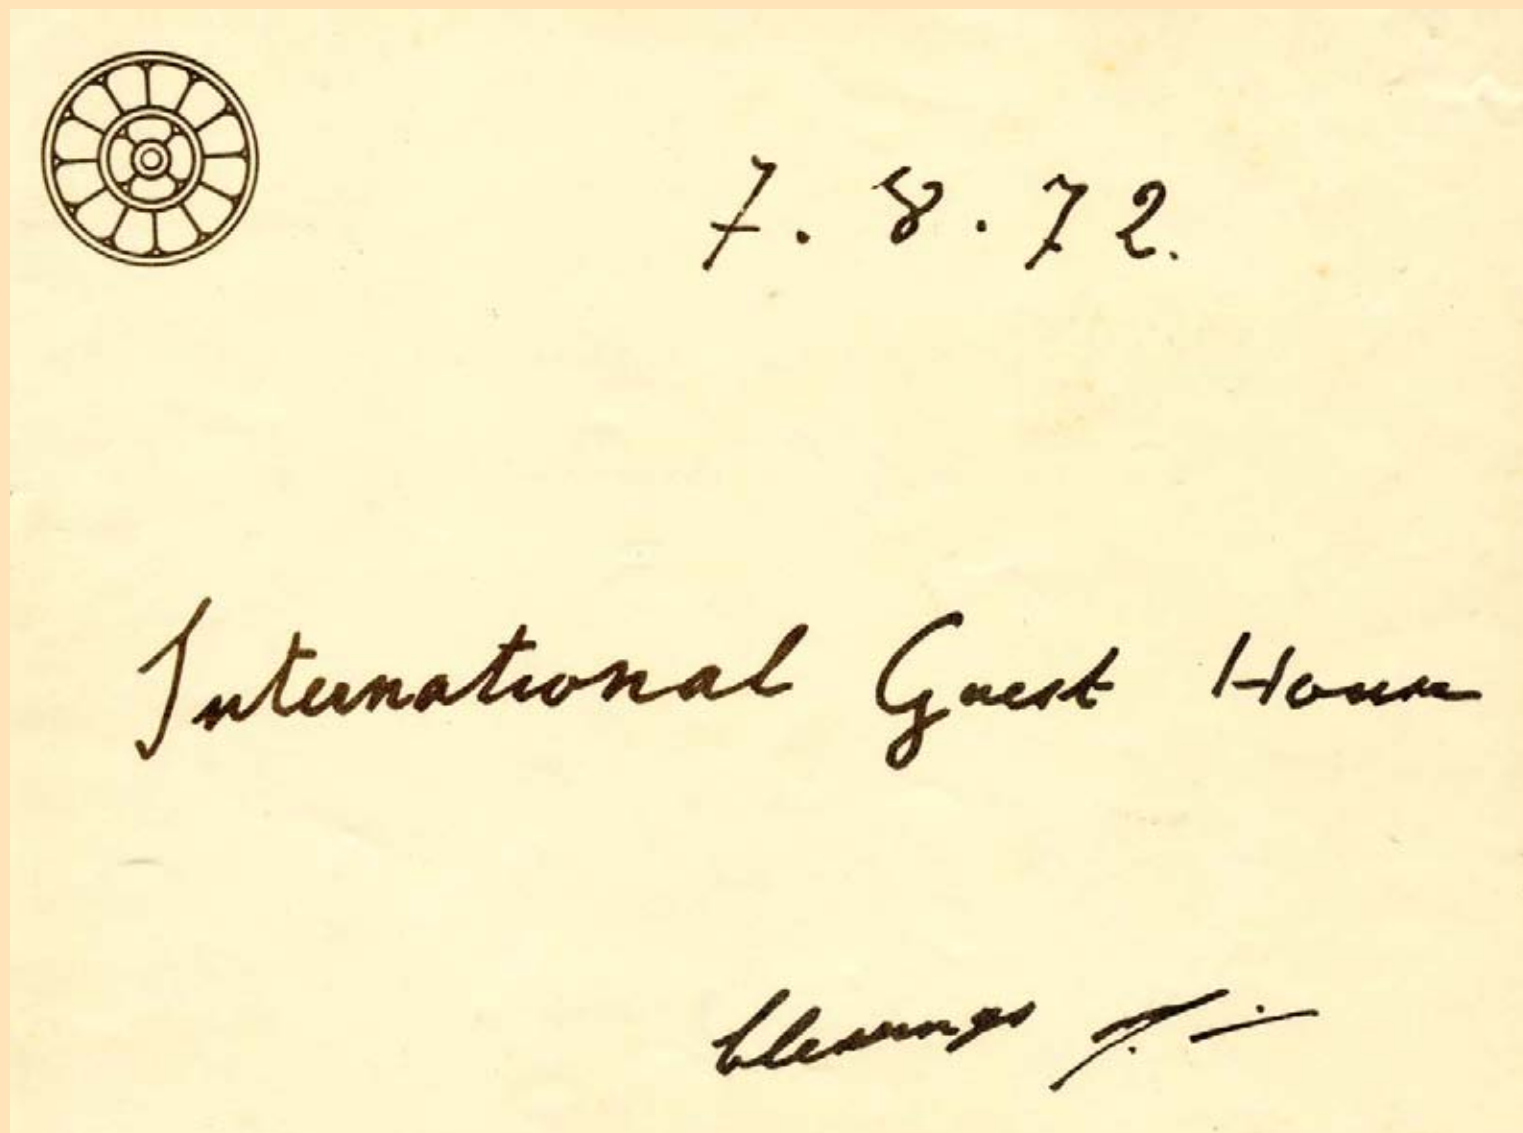 7.8.72.
International Guest House
blessings